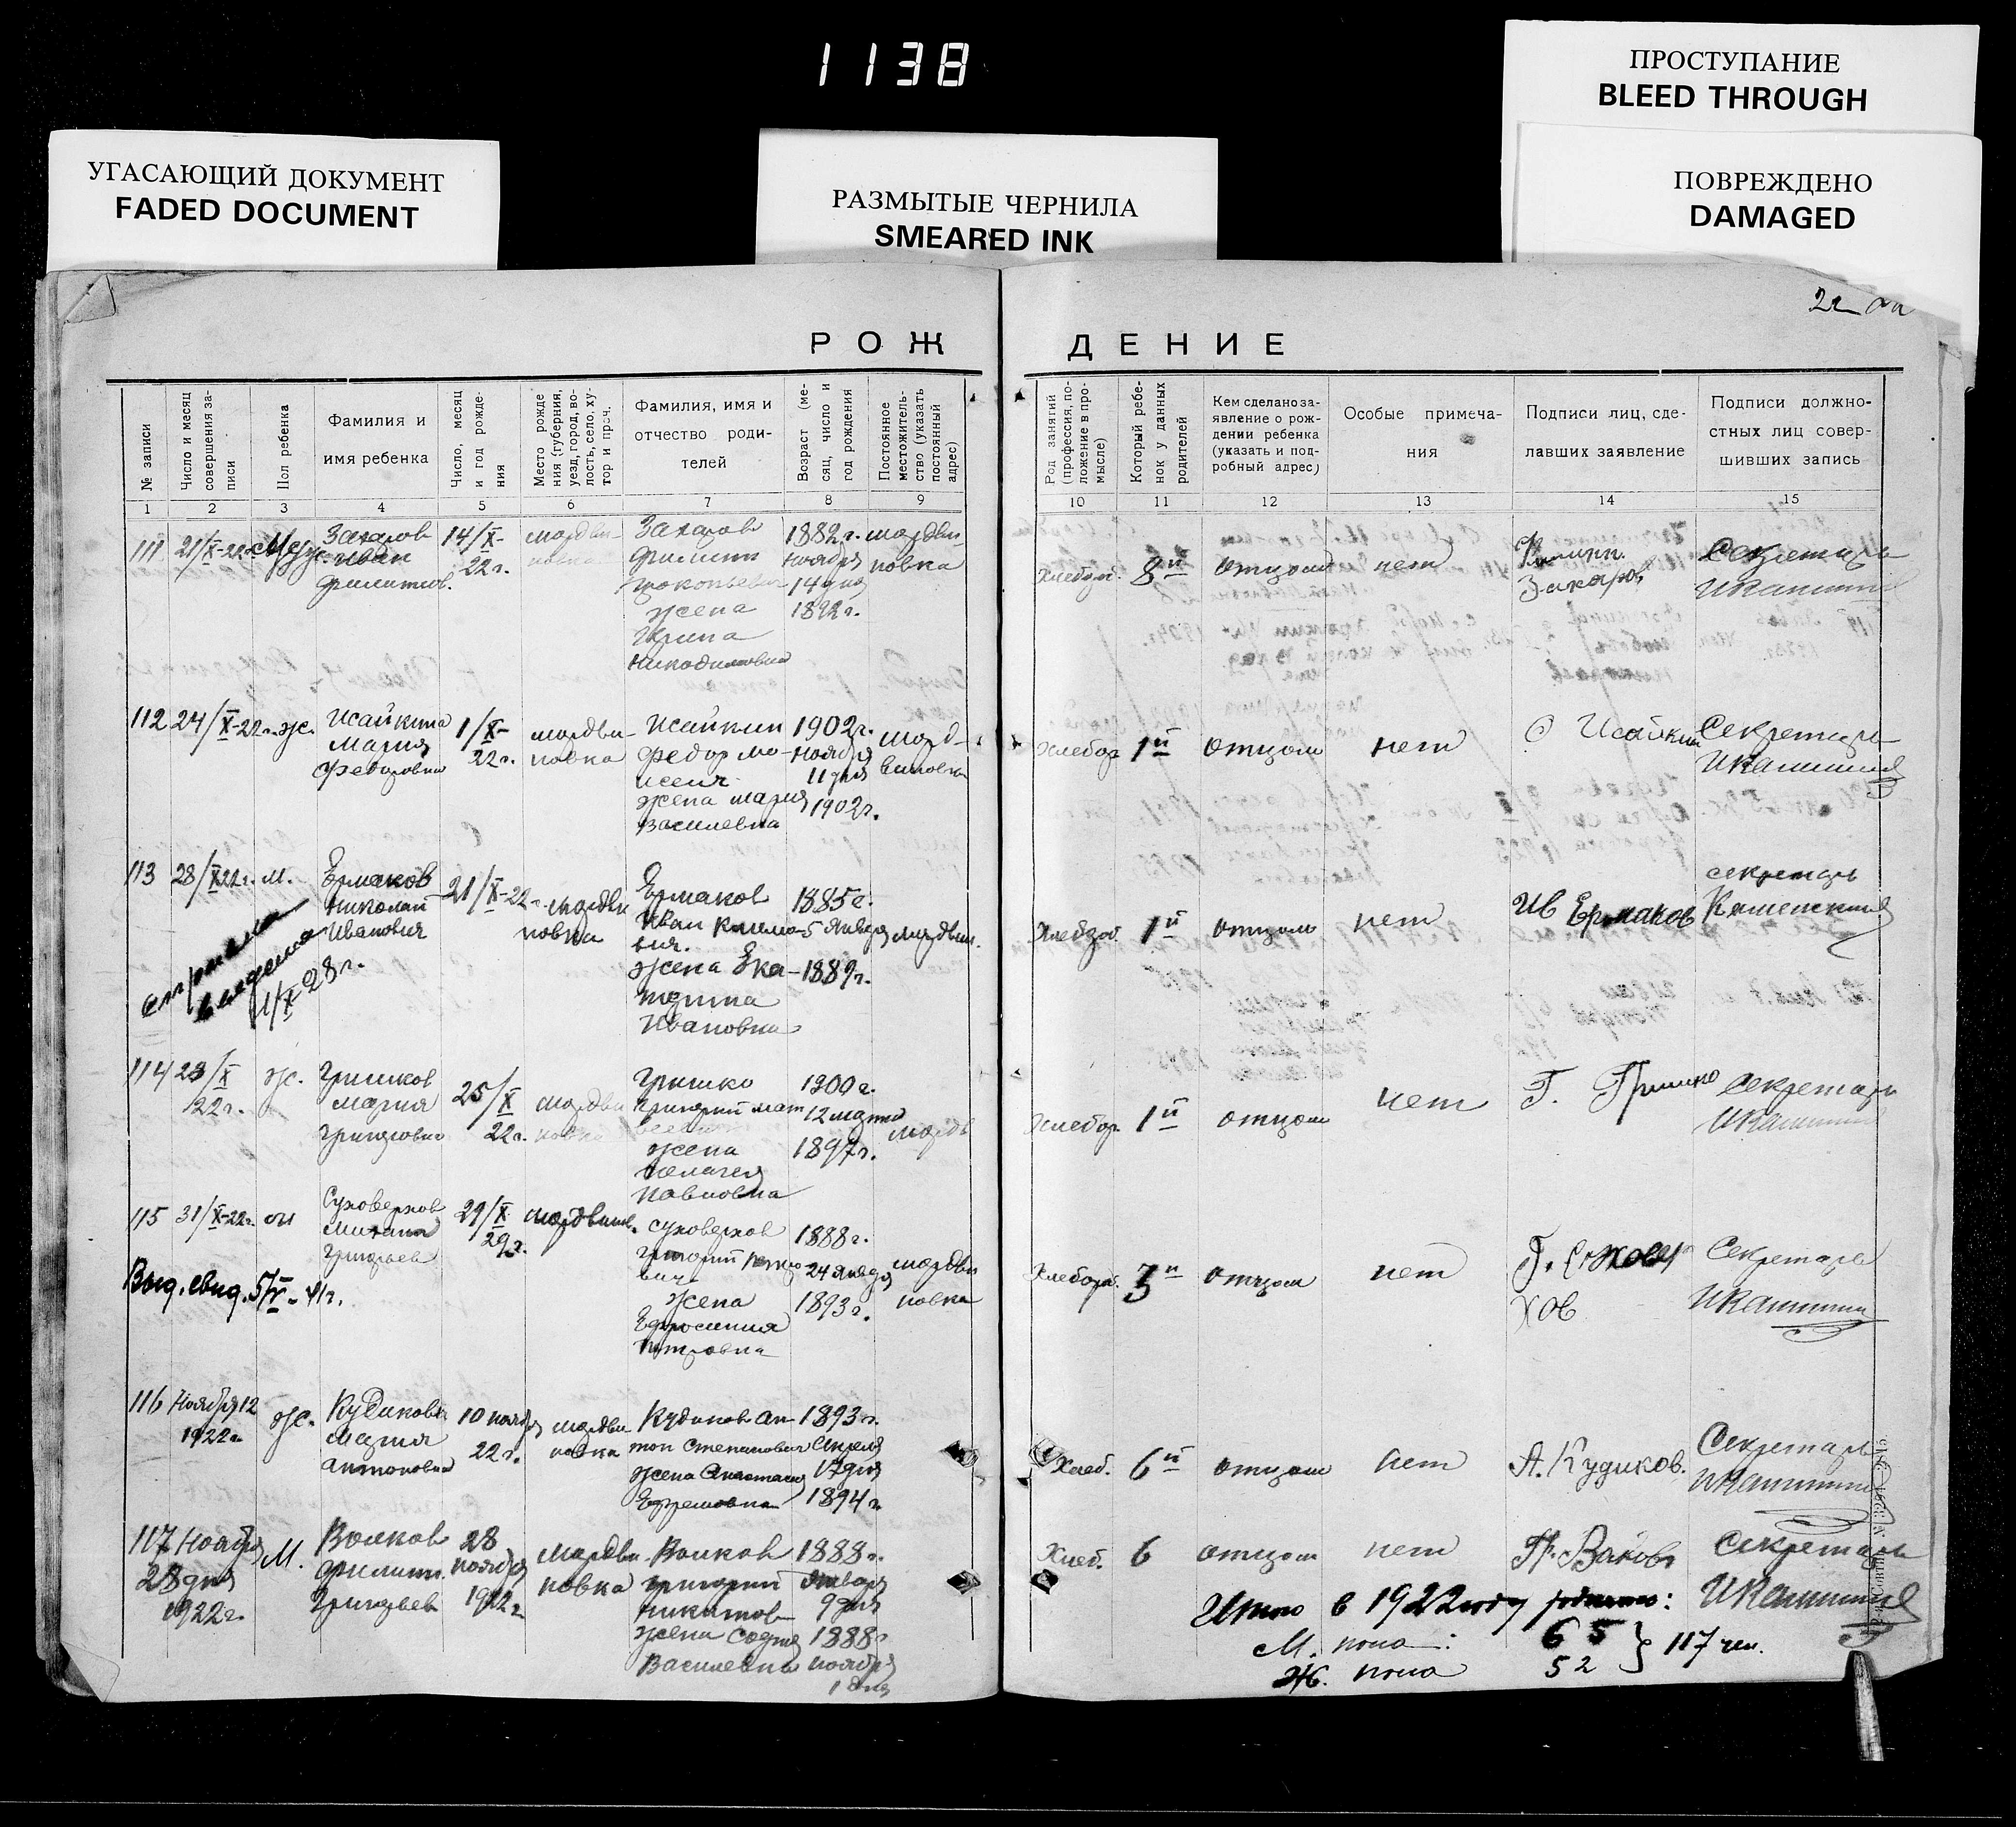 1138
ПРОСТУПАНИЕ
BLEED THROUGH
УГАСАЮЩИЙ ДОКУМЕНТ
FADED DOCUMENT
РАЗМЫТЫЕ ЧЕРНИЛА
SMEARED INK
ПОВРЕЖДЕНО
DAMAGED
РОЖДЕНИЕ
№ записи
Число и месяц
совершения за-
писи
Пол ребенка
Фамилия и
имя ребенка
Число, месяц
и год рожде-
ния
Место рожде
ния (губерния,
уезд, город, во-
лость, село, ху-
тор и проч.
Фамилия, имя и
отчество роди-
телей
Возраст (ме-
сяц, число и
год рождения
Постоянное
местожитель-
ство (указать
постоянный
адрес)
Род занятий
(профессия, по-
ложение в про-
мысле)
Который ребе-
нок у данных
родителей
Кем сделано за-
явление о рож-
дении ребенка
(указать и под-
робный адрес)
Особые примеча-
ния
Подписи лиц, сде-
лавших заявление
Подписи должно-
стных лиц совер-
шивших запись
1 2 3 4 5 6 7 8 9 10 11 12 13 14 15
111
21/X-22г.
Муж.
Захаров
Иван
Филиппов.
14/X-
22г.
мордви-
новка
Захаров
Филипп
Прокопьевич
жена
Ирина
Никодимовна
1882г.
ноября
14 дня
1892г.
мордви-
новка
Хлебороб.
8й
отцом
нет
Филипп.
Захаров
Секретарь
112
24/X-22г.
ж.
Исайкина
Мария
Федоровна
1/X-
22г.
мордви-
новка
Исайкин
Федор Мо-
исеич
жена Мария
Василевна
1902г.
ноября
11 дня
1902г.
морд-
виновка
Хлебор
1й
отцом
нет
Исайкин
Секретарь
113
28/X 22г.
м.
Ермаков
Николай
Иванович
21/X-22г.
мордви
новка
Ермаков
Иван Климо-
вич.
жена Ека-
терина
Ивановна
1885г.
5 января
1889г.
мордвин.
Хлебороб.
1й
отцом
нет
Ив Ермаков
секретарь
1/X 28г.
114
23/X
22г.
ж.
Гришков
Мария
Григоровна
25/X
22г.
мордви
новка
Гришко
Григорий Мат
веевич
жена
Пелагея
Павловна
1900г.
12 марта
1897г.
мордв
Хлебор.
1й
отцом
нет
Г. Гришко
Секретарь
115
31/X-22г.
м
Суховерхов
Михаил
Григорьев
29/X
29г.
мордвинов.
Суховерхов
Григорий
вич
жена
Ефросиния
Петровна
1888г.
24 января
1893г.
мордви
новка
Хлебороб.
3й
отцом
нет
Г. Суховер
хов
Секретарь
Выд. свид. 5/V-41г.
116
Ноября 12
1922г.
ж.
Кудикова
Мария
Антоновна
10 ноября
22г.
мордви
новка
Кудиков Ан-
тон Степанович
жена Анастасия
Ефремовна
1893г.
Апреля
17 дня
1894г.
Хлеб.
6й
отцом
нет
А. Кудиков.
Секретарь
117
Ноября
28 дня
1922г.
М.
Волков
Филипп.
Григорьев
28
ноября
1922г.
мордви
новка
Волков
Григорий
Никитов
жена София
Василевна
1888г.
Января
9 дня
1888г
ноября
1 дня
Хлеб.
6
отцом
нет
Секретарь
Итого в 1922 году родилось:
М. пола: 65
Ж. пола 52
} 117 чел.